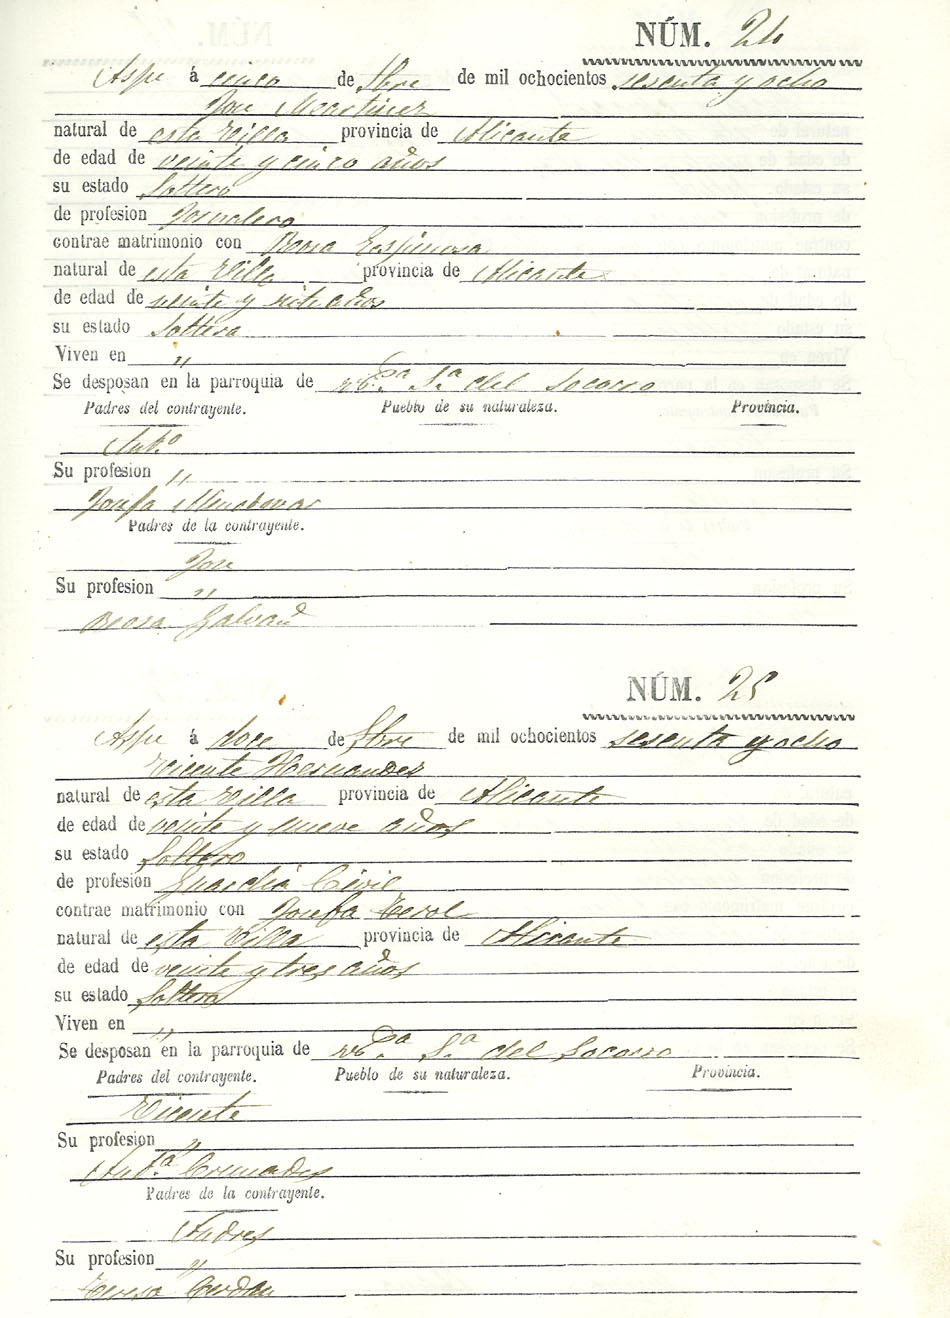 NÚM. 24
Aspe á cinco de 9bre de mil ochocientos sesenta y ocho
Jose Martinez
natural de esta Villa provincia de Alicante
de edad de veinte y cinco años
su estado Soltero
de profesion Jornalero
contrae matrimonio con Rosa Espinosa
natural de esta Villa provincia de Alicante
de edad de veinte y años
su estado Soltera
Viven en "
Se desposan en la parroquia de Sª del Socorro
Padres del contrayente. Pueblo de su naturaleza. Provincia.
Antº
Su profesion "
Josefa
Padres de la contrayente.
Jose
Su profesion "
Rosa Galvañ
NÚM. 25
Aspe á doce de 9bre de mil ochocientos sesenta y ocho
Vicente Hernandez
natural de esta Villa provincia de Alicante
de edad de veinte y nueve años
su estado Soltero
de profesion Guardia Civil
contrae matrimonio con Josefa Terol
natural de esta Villa provincia de Alicante
de edad de veinte y tres años
su estado Soltera
Viven en "
Se desposan en la parroquia de Sª del Socorro
Padres del contrayente. Pueblo de su naturaleza. Provincia.
Vicente
Su profesion "
Antª Cremades
Padres de la contrayente.
Andres
Su profesion "
Teresa Cerdan